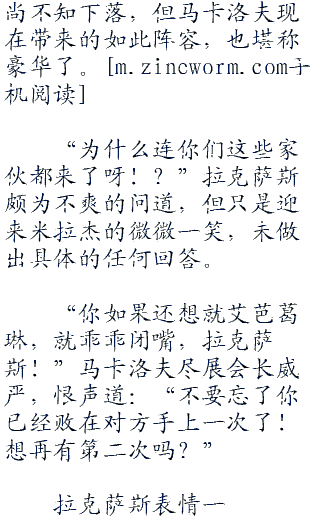 尚不知下落，但马卡洛夫现
在带来的如此阵容，也堪称
豪华了。[m.zincworm.com手
机阅读]
“为什么连你们这些家
伙都来了呀！？”拉克萨斯
颇为不爽的问道，但只是迎
来米拉杰的微微一笑，未做
出具体的任何回答。
“你如果还想就艾芭葛
琳，就乖乖闭嘴，拉克萨
斯！”马卡洛夫尽展会长威
严，恨声道：“不要忘了你
已经败在对方手上一次了！
想再有第二次吗？”
拉克萨斯表情一